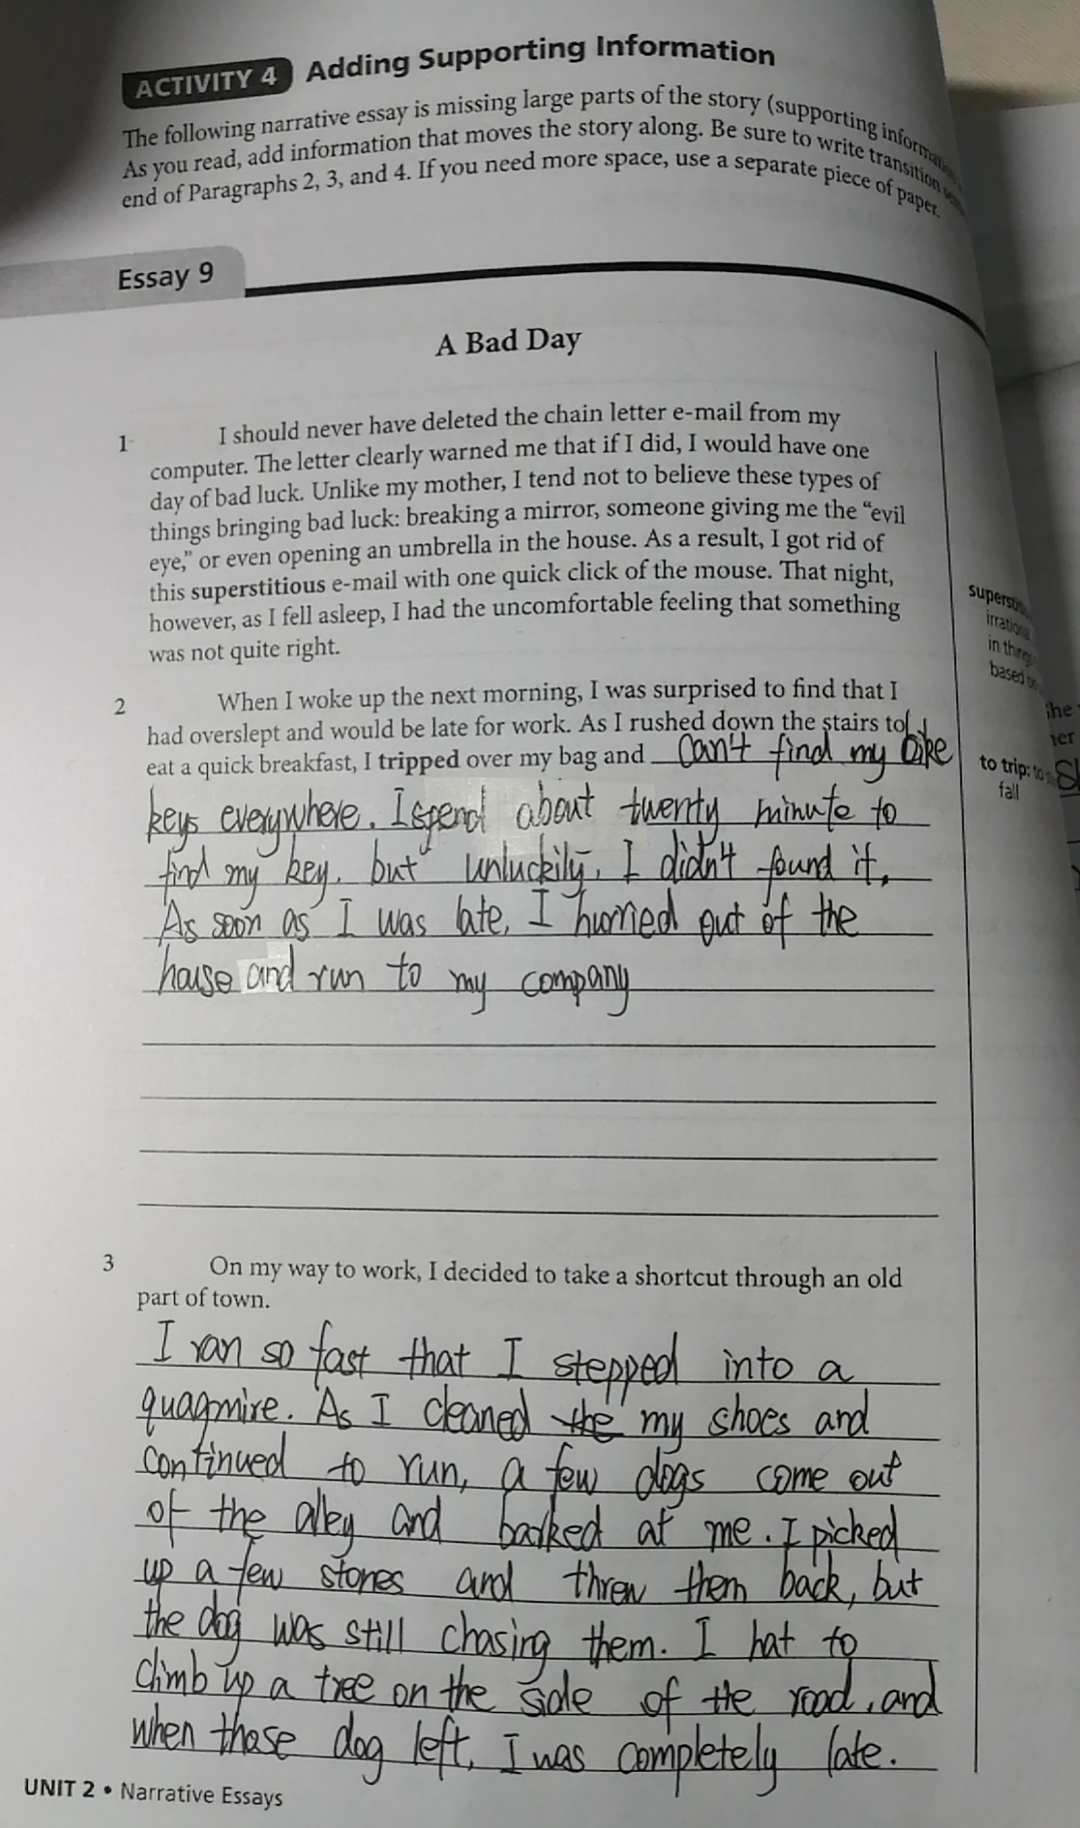 ACTIVITY 4 Adding Supporting Information
The following narrative essay is missing large parts of the story (supporting
As you read, add information that moves the story along. Be sure to write transition
end of Paragraphs 2, 3, and 4. If you need more space, use a separate piece of paper.
Essay 9
A Bad Day
1 I should never have deleted the chain letter e-mail from my
computer. The letter clearly warned me that if I did, I would have one
day of bad luck. Unlike my mother, I tend not to believe these types of
things bringing bad luck: breaking a mirror, someone giving me the “evil
eye,” or even opening an umbrella in the house. As a result, I got rid of
this superstitious e-mail with one quick click of the mouse. That night,
however, as I fell asleep, I had the uncomfortable feeling that something
was not quite right.
2 When I woke up the next morning, I was surprised to find that I
had overslept and would be late for work. As I rushed down the stairs to
eat a quick breakfast, I tripped over my bag and can't find my bike
keys everywhere. I spend about twenty minute to
find my key. but unluckily, I didn't found it.
As soon as I was late, I hurried out of the
house and run to my company
3 On my way to work, I decided to take a shortcut through an old
part of town.
I ran so fast that I stepped into a
quagmire. As I cleaned the my shoes and
continued to run, a few dogs come out
of the alley and barked at me. I picked
up a few stones and threw them back, but
the dog was still chasing them. I hat to
climb up a tree on the side of the road, and
when those dog left, I was completely late.
UNIT 2 • Narrative Essays
in
based
to trip: to
fall